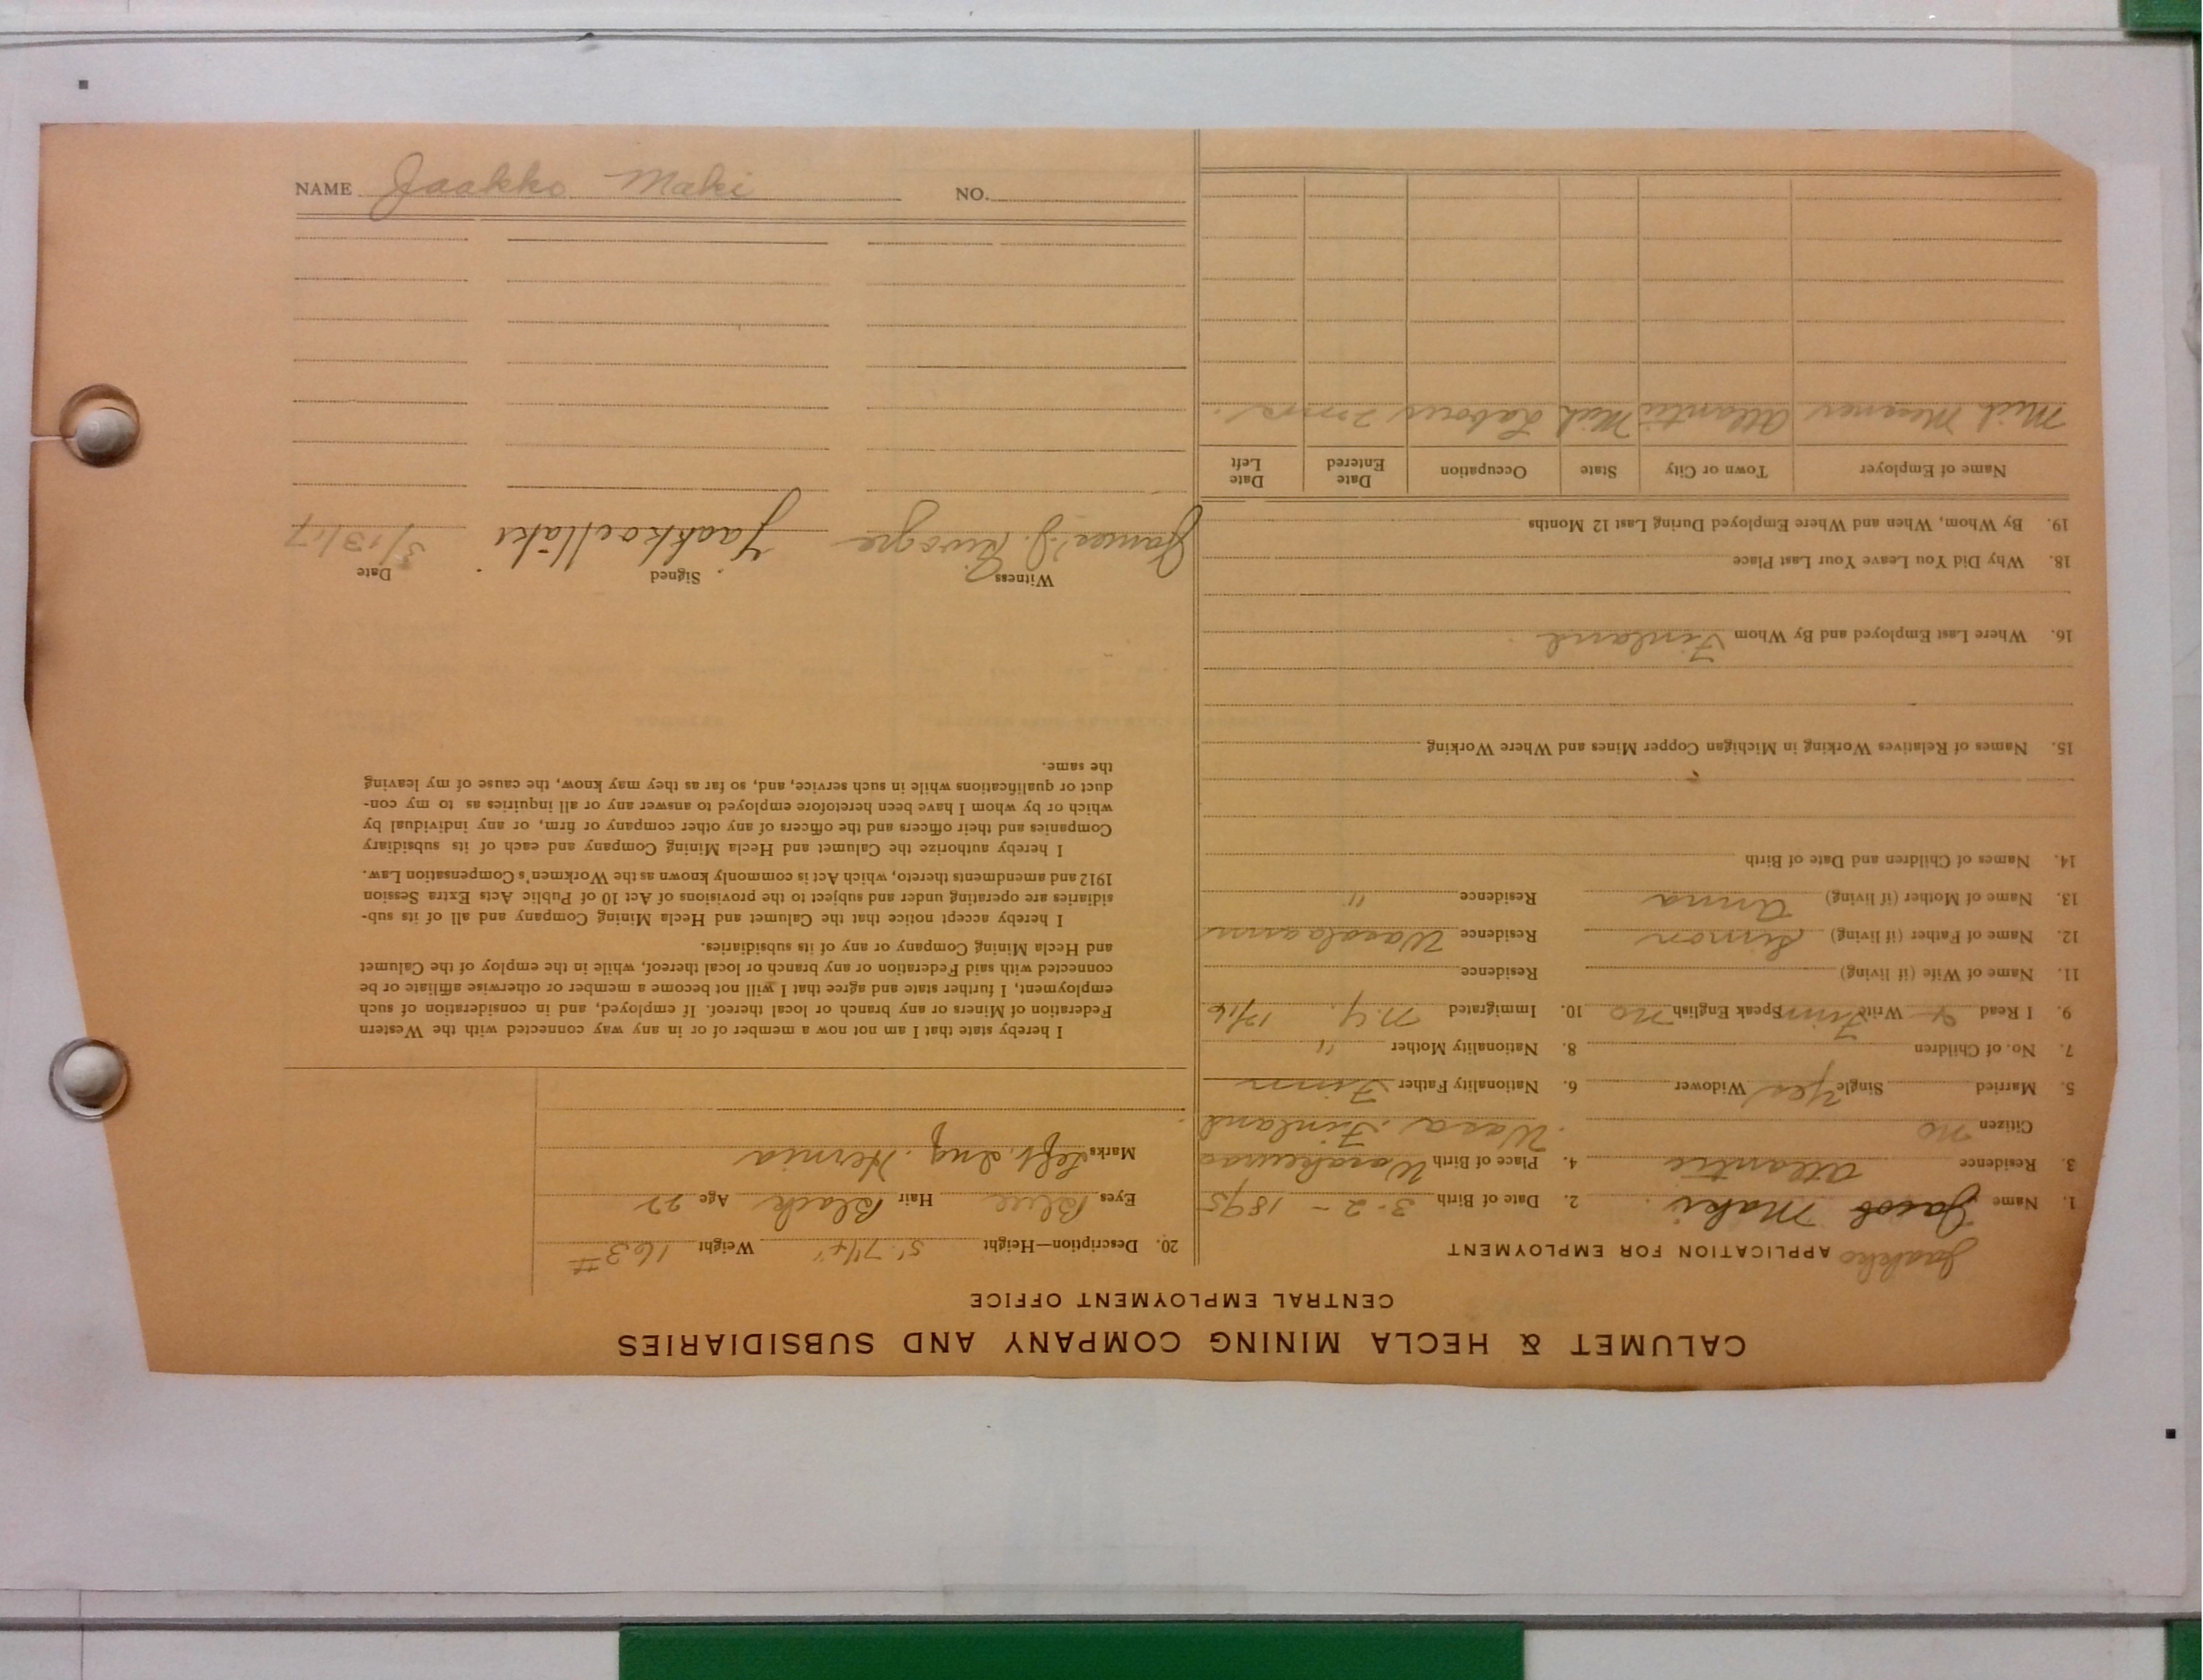 CALUMET & HECLA MINING COMPANY AND SUBSIDIARIES
CENTRAL EMPLOYMENT OFFICE
Jaakko APPLICATION FOR EMPLOYMENT
1. Name Jacob Maki 2. Date of Birth 3-2-1895
3. Residence Atlantic 4. Place of Birth
Citizen no Wasa, Finland
5. Married Single Yes Widower 6. Nationality Father Finn
7. No. of Children 8. Nationality Mother "
9. I Read & Write Finn Speak English no 10. Immigrated N.Y. 12/16
11. Name of Wife (if living) Residence
12. Name of Father (if living) Simon Residence
13. Name of Mother (if living) Anna Residence "
14. Names of Children and Date of Birth
15. Names of Relatives Working in Michigan Copper Mines and Where Working
16. Where Last Employed and By Whom Finland
18. Why Did You Leave Your Last Place
19. By Whom, When and Where Employed During Last 12 Months
Name of Employer Town or City State Occupation Date Entered Date Left
Mich Atlantic Mich Labour
20. Description—Height 5' 7 1/4" Weight 163 #
Eyes Blue Hair Black Age 22
Marks Left Ing. Hernia
I hereby state that I am not now a member of or in any way connected with the Western
Federation of Miners or any branch or local thereof. If employed, and in consideration of such
employment, I further state and agree that I will not become a member or otherwise affiliate or be
connected with said Federation or any branch or local thereof, while in the employ of the Calumet
and Hecla Mining Company or any of its subsidiaries.
I hereby accept notice that the Calumet and Hecla Mining Company and all of its sub-
sidiaries are operating under and subject to the provisions of Act 10 of Public Acts Extra Session
1912 and amendments thereto, which Act is commonly known as the Workmen's Compensation Law.
I hereby authorize the Calumet and Hecla Mining Company and each of its subsidiary
Companies and their officers and the officers of any other company or firm, or any individual by
which or by whom I have been heretofore employed to answer any or all inquiries as to my con-
duct or qualifications while in such service, and, so far as they may know, the cause of my leaving
the same.
Witness Signed Date
James J. Jaakko Mäki 3/13/17
NAME Jaakko Maki NO.